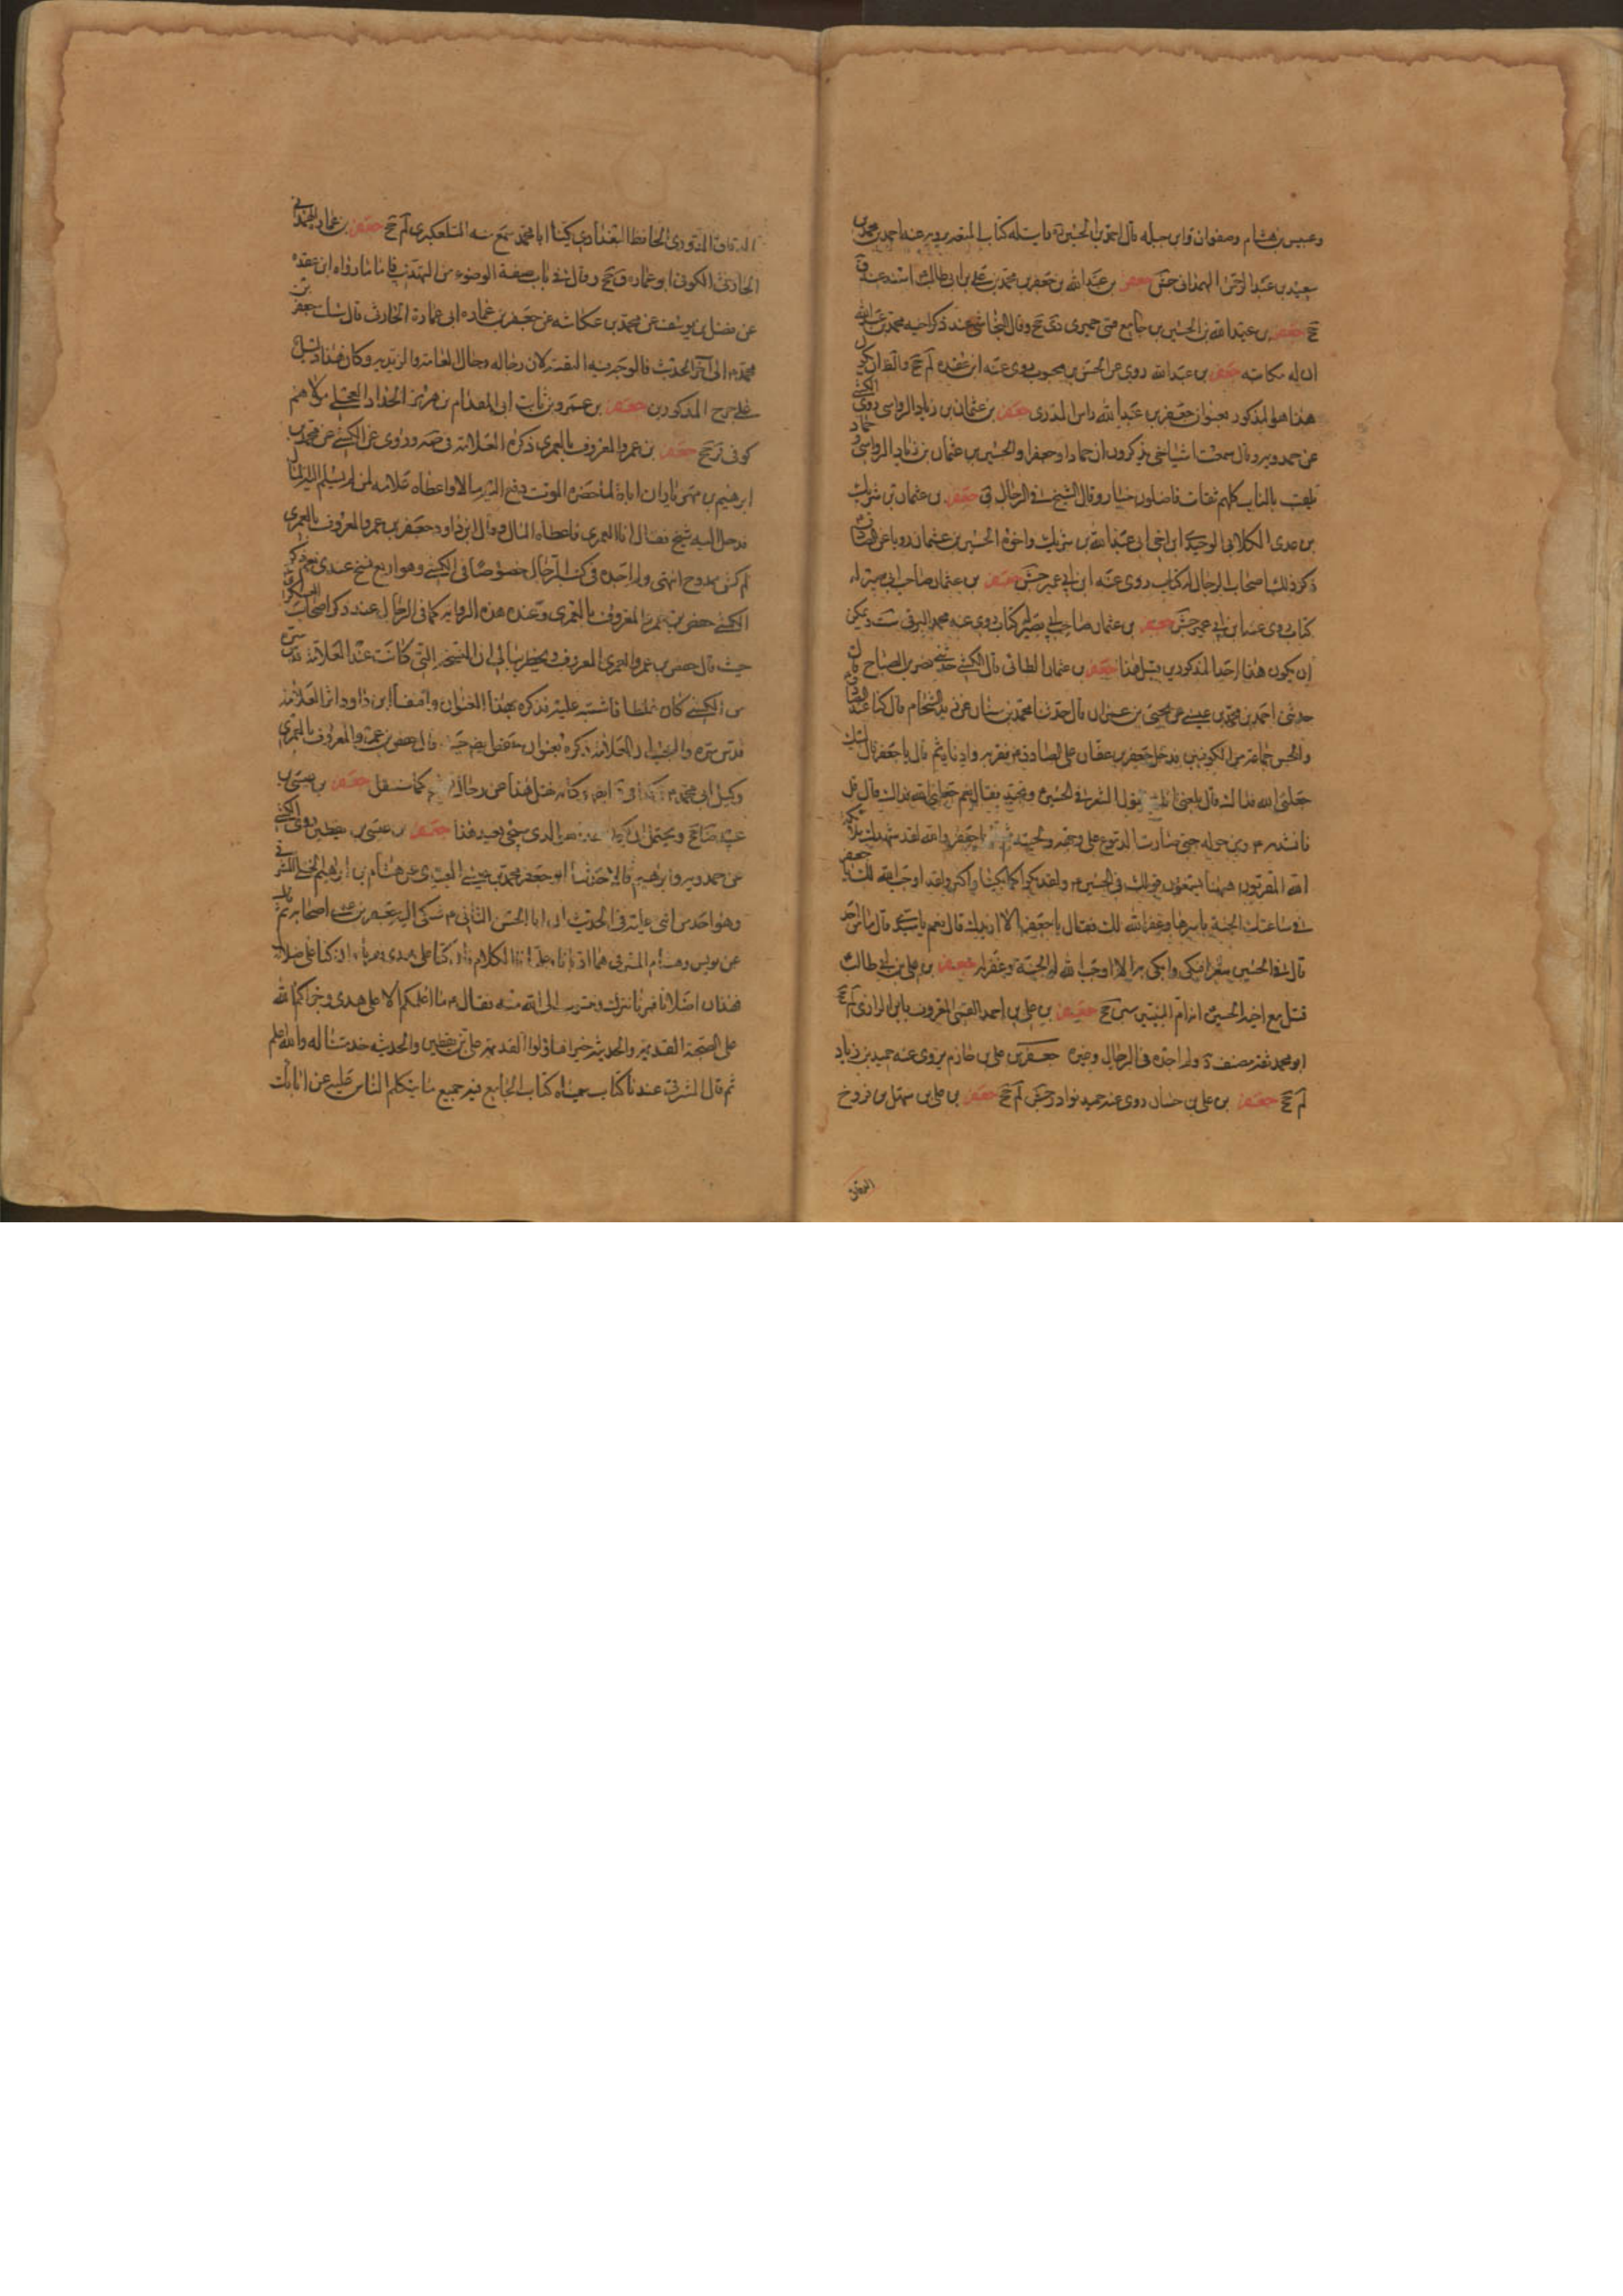 وعبيس بن هشام وصفوان وابن جبله قال احمد بن الحسين ره رايت له كتاب المتعه يرويه عنه احمد بن محمد بن
سعيد بن عبد الرحمن الهمداني جش جعفر بن عبد الله بن جعفر بن محمد بن علي بن ابي طالب ع اسند عنه ق
جخ جعفر بن عبد الله بن الحسين بن جامع قمي حميري دي جخ وقال النجاشي عند ذكر اخيه محمد بن عبد الله
ان له مكاتبه جعفر بن عبد الله روى عن الحسن بن محبوب روى عنه ابن عقده لم جخ والظ ان يكون
هذا هو المذكور بعنوان جعفر بن عبد الله راس المدرى جعفر بن عثمان بن زياد الرواسي روى الكشي
عن حمدويه قال سمعت اشياخي يذكرون ان حمادا وجعفرا والحسين بن عثمان بن زياد الرواسي وحماد
يلقب بالناب كلهم ثقات فاضلون خيار وقال الشيخ في الرجال ق جعفر بن عثمان بن شريك
بن عدي الكلابي الوحيدي ابن اخي ابي عبد الله بن شريك واخوه الحسين بن عثمان رويا عن ابي
ذكر ذلك اصحاب الرجال له كتاب روى عنه ابن ابي عمير جش جعفر بن عثمان صاحب ابي بصير له
كتاب روى عنه ابن ابي عمير جش جعفر بن عثمان صاحب ابي بصير له كتاب روى عنه محمد البرقي ست ويمكن
ان يكون هذا احد المذكورين قبل هذا جعفر بن عثمان الطائي قال الكشي حدثني نصر بن الصباح قال
حدثني احمد بن محمد بن عيسى عن يحيى بن عمران قال حدثنا محمد بن سنان عن زيد الشحام قال كنا عند الصادق
ونحن جماعة من الكوفيين فدخل جعفر بن عفان على الصادق ع فقربه وادناه ثم قال يا جعفر قال لبيك
جعلني الله فداك قال بلغني انك تقول الشعر في الحسين ع وتجيد فقال نعم جعلني الله فداك قال قل
فانشده ع ومن حوله حتى صارت الدموع على وجهه ولحيته ثم قال يا جعفر والله لقد شهدك ملائكة
الله المقربون ههنا يسمعون قولك في الحسين ع ولقد بكوا كما بكينا واكثر ولقد اوجب الله لك يا جعفر
في ساعتك الجنة باسرها وغفر الله لك فقال يا جعفر الا ازيدك قال نعم يا سيدي قال ما من احد
قال في الحسين شعرا فبكى وابكى به الا اوجب الله له الجنة وغفر له جعفر بن علي بن ابي طالب ع
قتل مع اخيه الحسين ع امه ام البنين سين جخ جعفر بن علي بن احمد القمي المعروف بابن الرازي لم جخ
ابو محمد ثقه مصنف د ولم اجده في الرجال وغيره جعفر بن علي بن حازم روى عنه حميد بن زياد
لم جخ جعفر بن علي بن حسان روى عنه حميد نوادر جش لم جخ جعفر بن علي بن سهل بن فروخ
الدقاق
الدقاق الدوري الحافظ البغدادي يكنى ابا محمد سمع منه التلعكبري لم جخ جعفر بن عماره الهمداني
الخارفي الكوفي ابو عماره ق جخ وقال في باب صفة الوضوء من التهذيب فاما ما رواه ابن عقده
عن فضل بن يوسف عن محمد بن عكاشه عن جعفر بن عماره ابي عمارة الخارفي قال سالت جعفر بن
محمد ع الى آخر الحديث فالوجه فيه التقيه لان رجاله رجال العامه والزيديه وكان هذا دليل
على جرح المذكورين جعفر بن عمرو بن ثابت ابي المقدام بن هرمز الحداد العجلي مولاهم
كوفي ق جخ جعفر بن عمرو المعروف بالعمري ذكره العلامه في صه وروى عن الكشي عن محمد بن
ابرهيم بن مهزيار ان اباه لما حضره الموت دفع اليه مالا واعطاه علامه لمن يسلم اليه المال
فدخل اليه شيخ فقال انا العمري فاعطاه المال وقال ابن داود جعفر بن عمرو المعروف بالعمري
لم كش ممدوح انتهى ولم اجده في كتب الرجال خصوصا في الكشي وهو اربع نسخ عندي نعم ذكر
الكشي حفص بن عمرو المعروف بالعمري وعنده هذه الروايه كما في الرجال عند ذكر اصحاب العسكري ع
حيث قال حفص بن عمرو العمري المعروف ويخطر ببالي ان النسخه التي كانت عند العلامه قدس سره
من الكشي كان غلطا فاشتبه عليه فذكره بهذا العنوان واقتفا ابن داود اثر العلامه
قدس سره والعجب ان العلامه ذكره بعنوان حفص ايضا حيث قال حفص بن عمرو المعروف بالعمري
وكيل ابي محمد ع جعفر بن عيسى بن
عبيد ضا جخ ويحتمل ان يكون الذي سيجيء بعيد هذا جعفر بن عيسى بن يقطين روى الكشي
عن حمدويه وابرهيم قالا حدثنا ابو جعفر محمد بن عيسى العبيدي عن هشام بن ابرهيم الختلي المشرقي
وهو احد من اثنى عليه في الحديث ان ابا الحسن الثاني ع شكى اليه جعفر بن عيسى اصحابه ثم
عن يونس وهشام المشرقي هما ادبانا وعلمانا الكلام فان كنا على هدى وان كنا على ضلال
فهذان اضلانا فمرنا نتركه ونتوب الى الله منه فقال ع ما اعلمكم الا على هدى وجزاكم الله
على الصحبة القديمه والحديثه خيرا فتاولوا القديمه علي بن يقطين والحديثه خدمتنا له والله اعلم
ثم قال المشرقي عندنا كتاب سميناه كتاب الجامع فيه جميع ما يتكلم الناس عليه عن ابائك